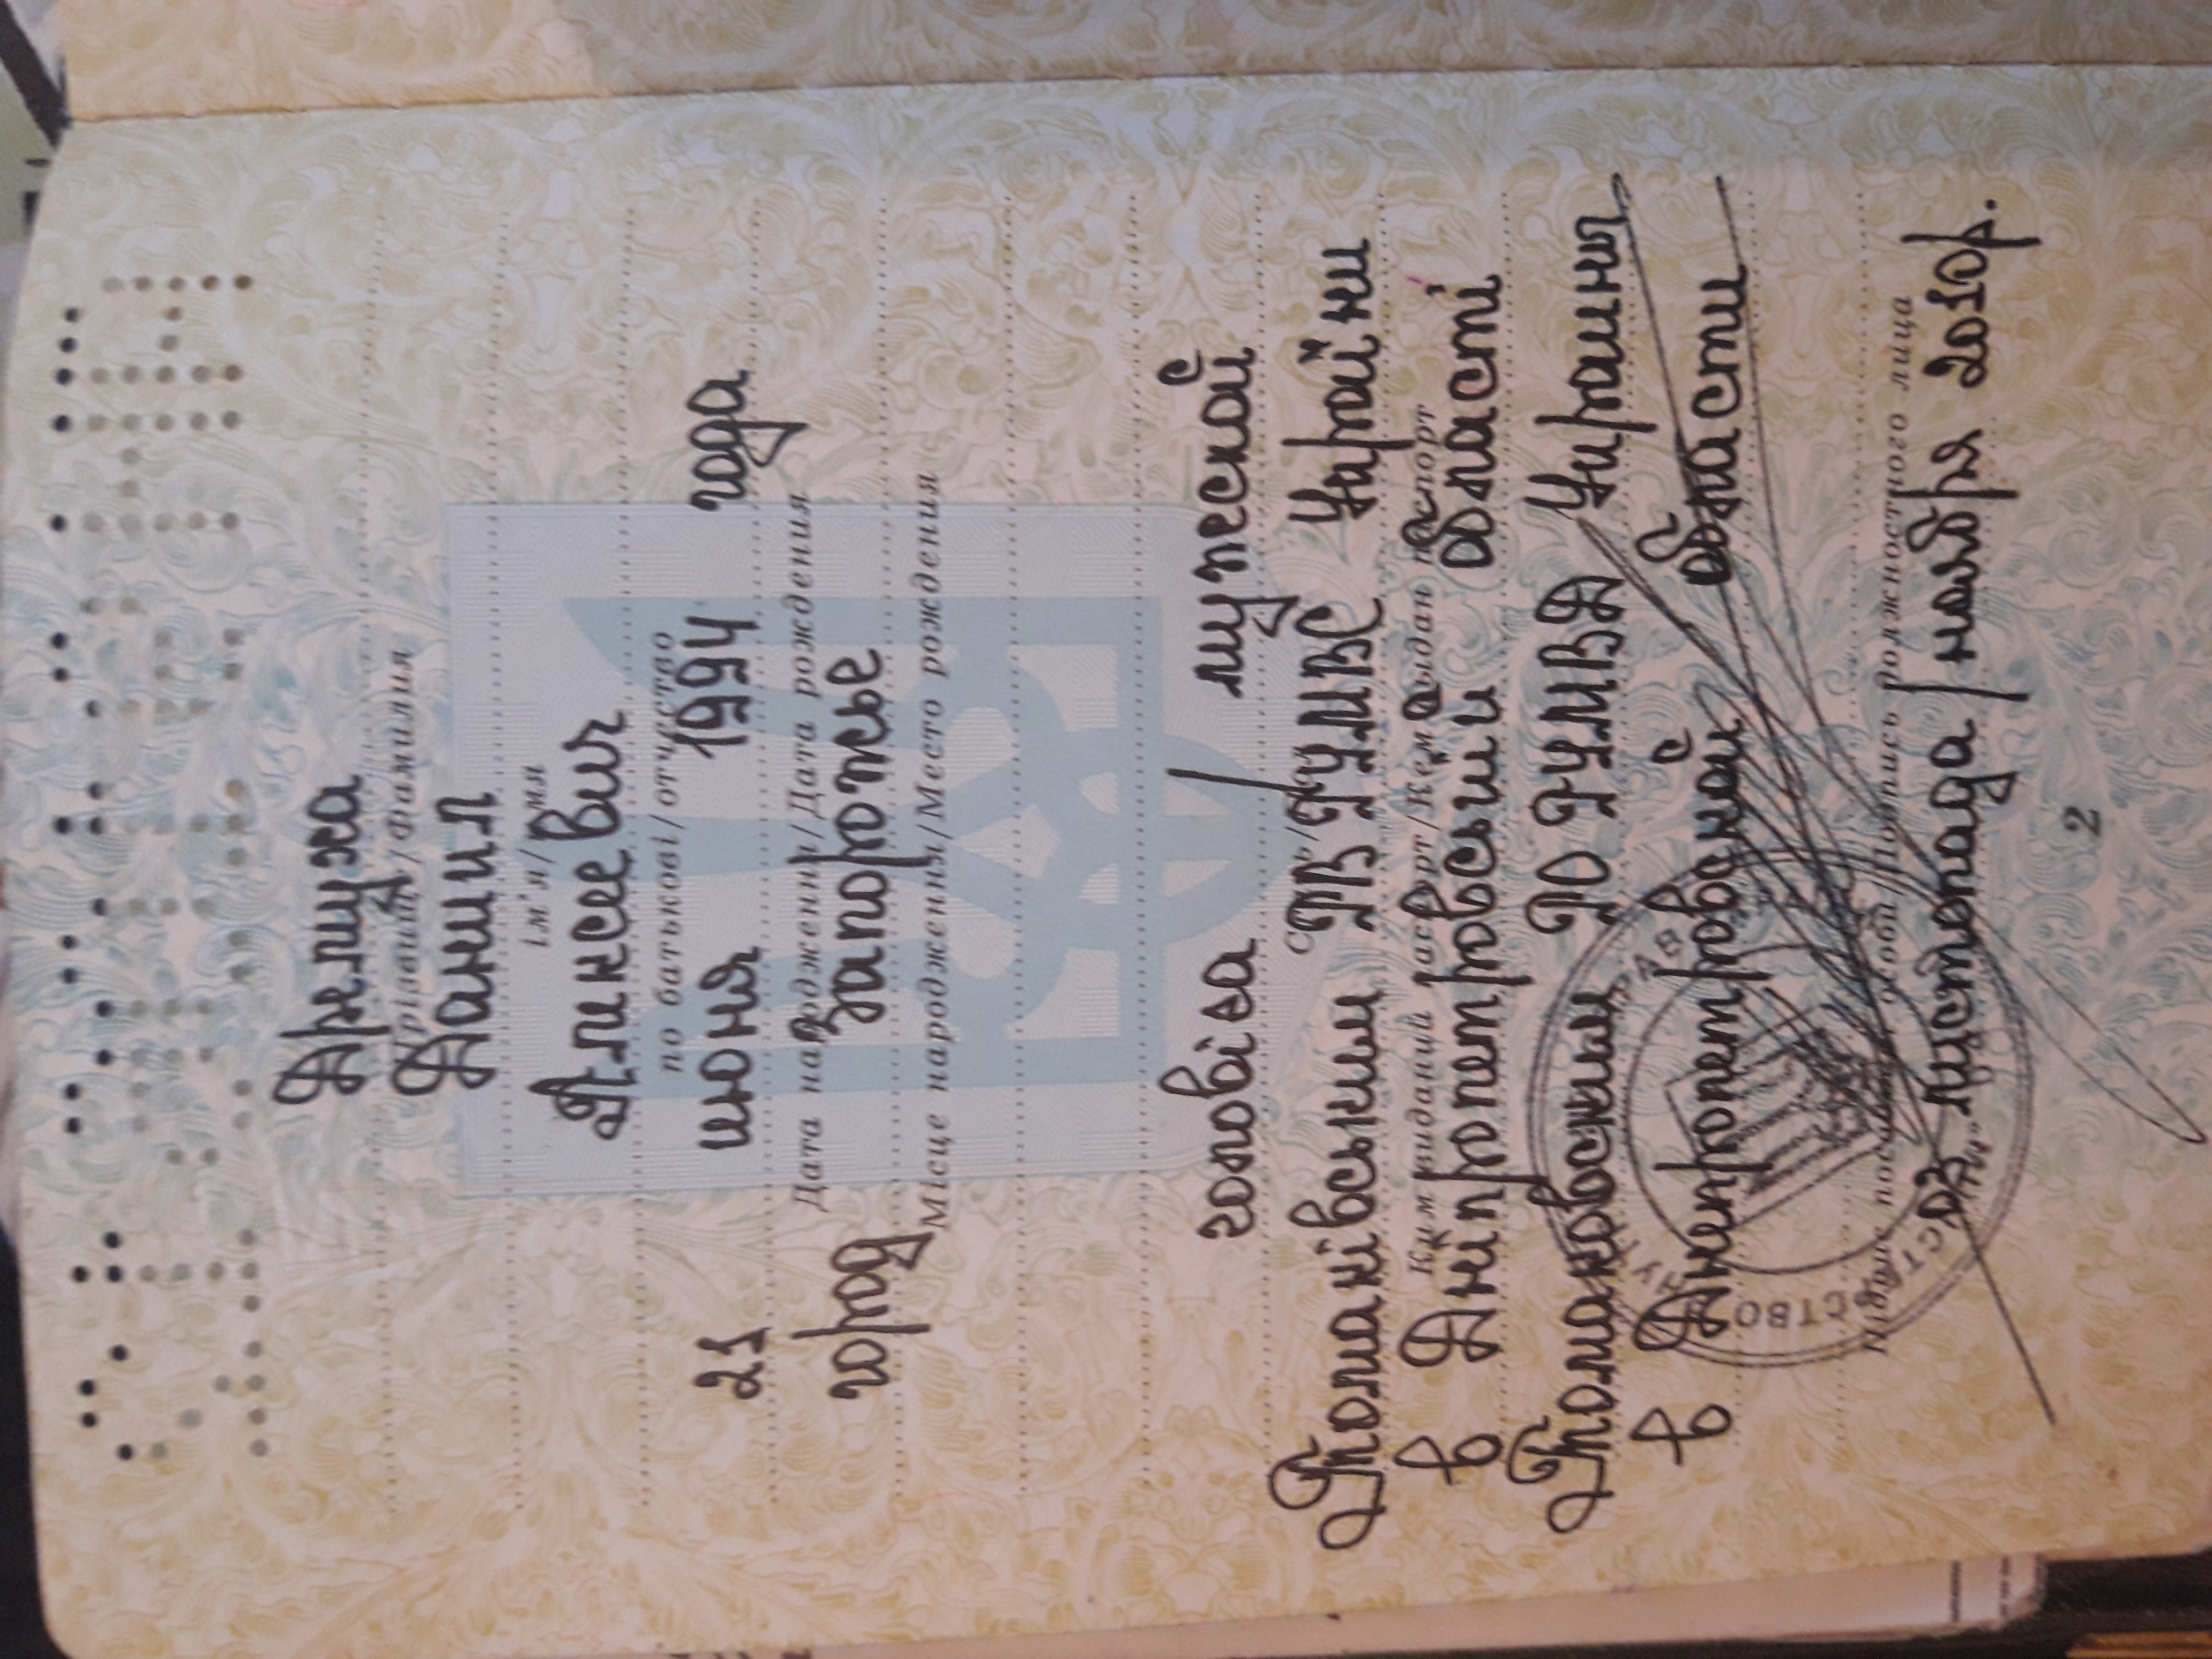 Дремуха
Прізвище/Фамилия
Даниил
ім'я/имя
Алексеевич
по батькові/отчество
21 июня 1994 года
Дата народження/Дата рождения
город Запорожье
Місце народження/Место рождения
чоловіча / мужской
Томаківським РВ ГУМВС України
Ким виданий паспорт/Кем выдан паспорт
в Дніпропетровській області
Томаковским РО ГУМВД Украины
в Днепропетровской области
Підпис посадової особи/Подпись должностного лица
03 листопада / ноября 2010р.
2